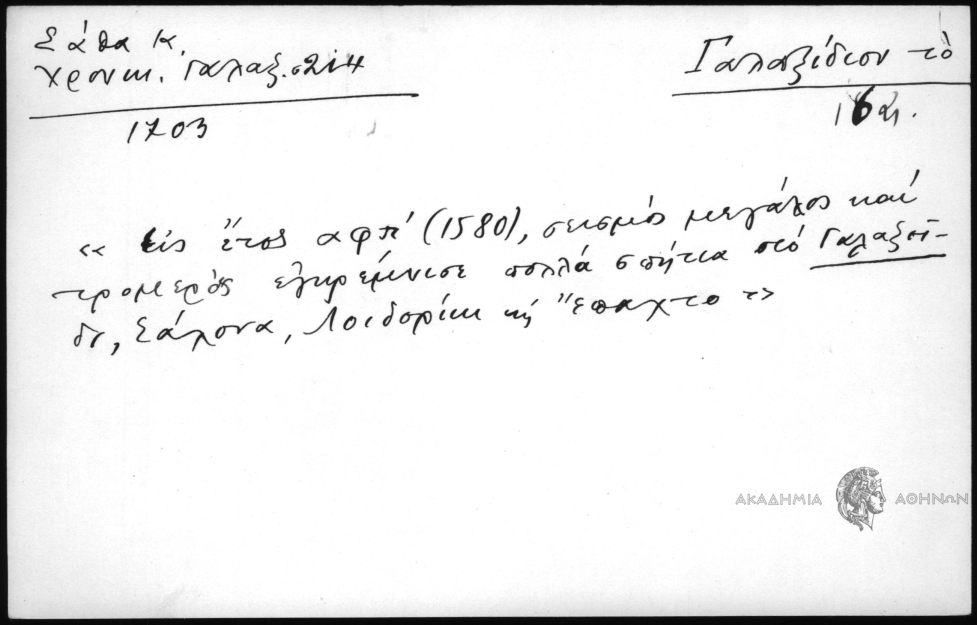 Σάθα Κ.
Χρονικ. Γαλαξ. σ. 214
1703
Γαλαξείδιον τὸ
16 αι.
« εἰς ἔτος αφπ' (1580), σεισμός μεγάλος καί
τρομερός ἐγκρέμνισε πολλά σπήτια στό Γαλαξεί-
δι, Σάλονα, Λοιδορίκι κὴ Ἔπαχτο »
ΑΚΑΔΗΜΙΑ ΑΘΗΝΩΝ